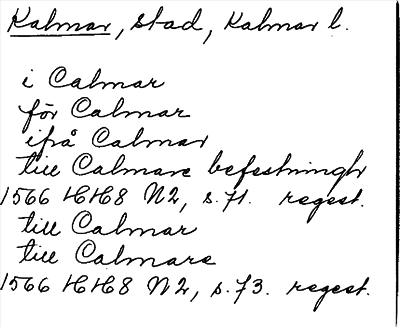 Kalmar, stad, Kalmar l.
i Calmar
för Calmar
ifrå Calmar
till Calmare befestningh
1566 HH8 N2, s. 71. regest.
till Calmar
till Calmare
1566 HH8 N2, s. 73. regest.